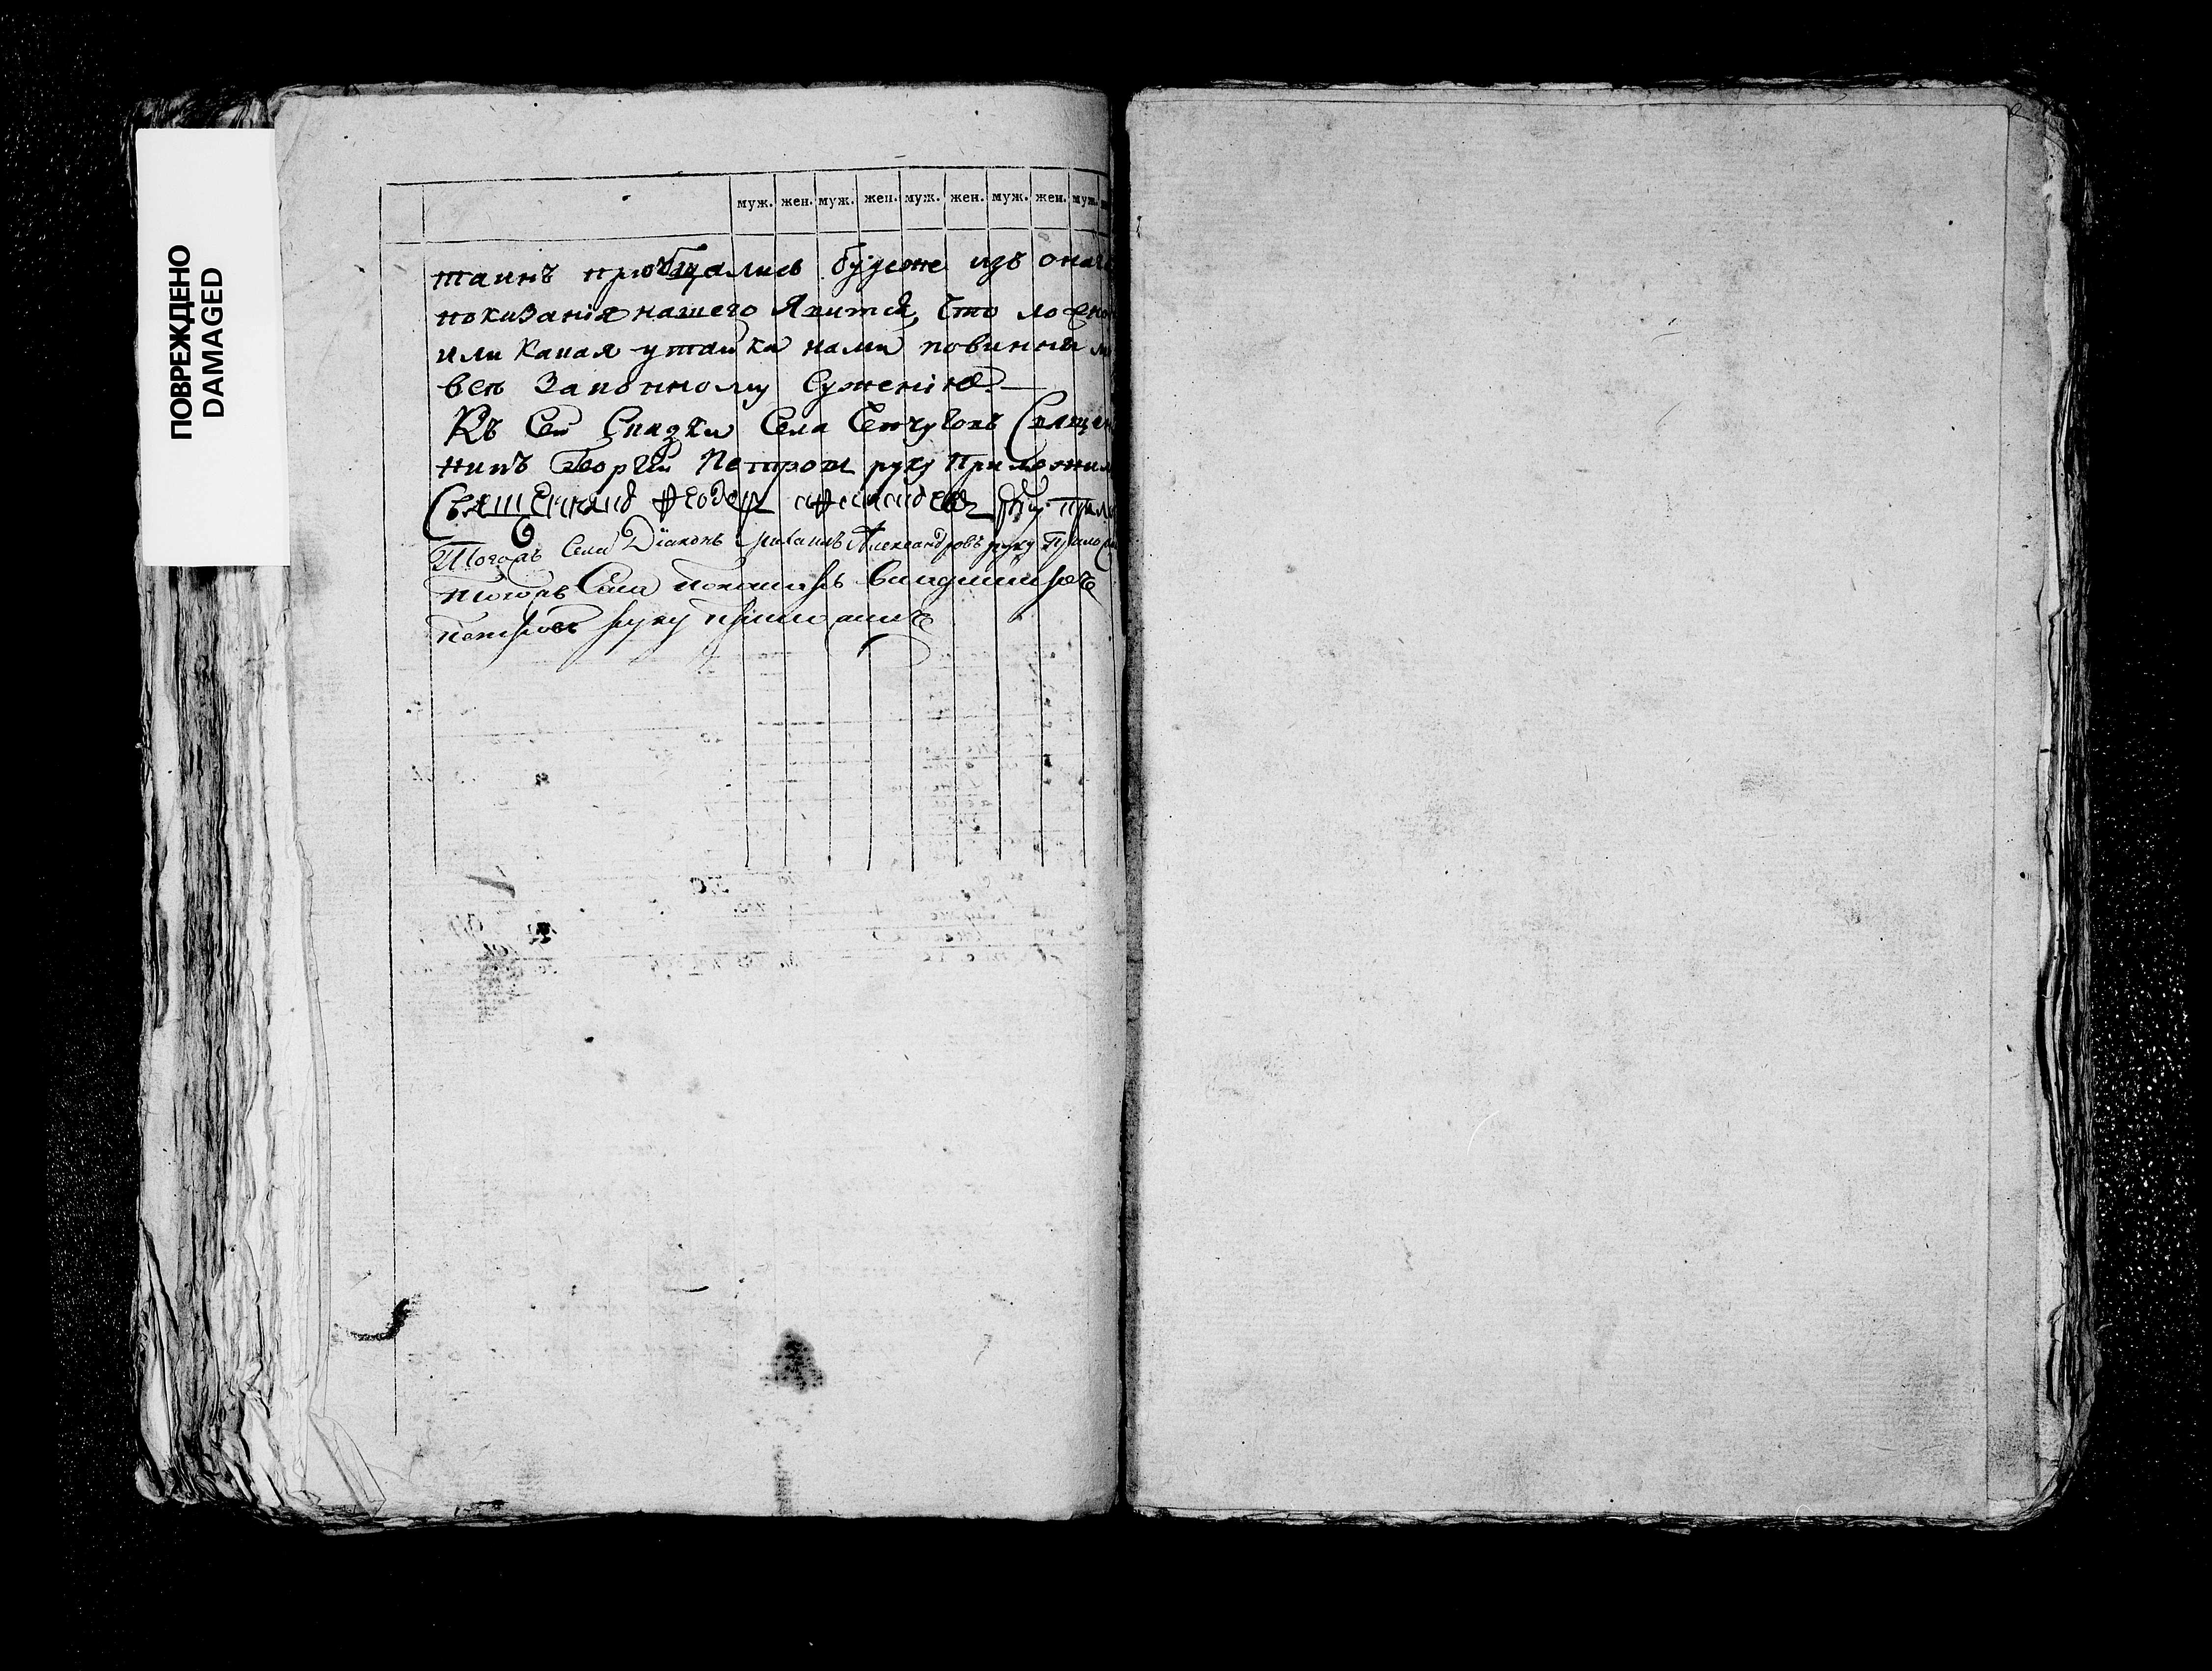 ПОВРЕЖДЕНО
DAMAGED
муж. жен. муж. жен. муж. жен. муж. жен. муж.
таинъ приобщались будеже изъ онаго
показанія нашего явится, что ложно
или какая утайка нами повинны
всѣ законному сужденію
Къ сей скаски села Священ
никъ Георгій Петровъ руку приложил
Священникъ руку прило
Тогожъ села Діаконъ Михаилъ Александровъ руку прило
тогожъ села понамарь Владимиръ
Петровъ руку приложилъ